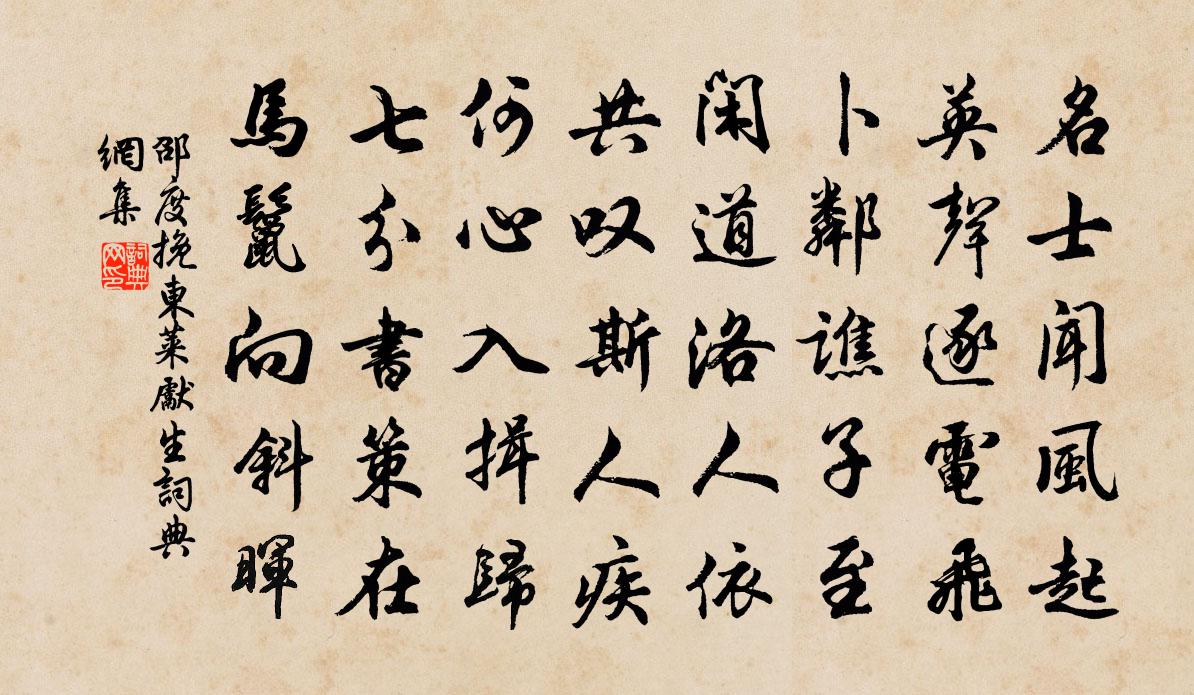 名士聞風起
英聲逐電飛
卜鄰譙子至
閑道洛人依
共叹斯人疾
何心入揖歸
七分書策在
馬鬣向斜暉
邵度挽東莱獻生詞典
網集
詞典网印